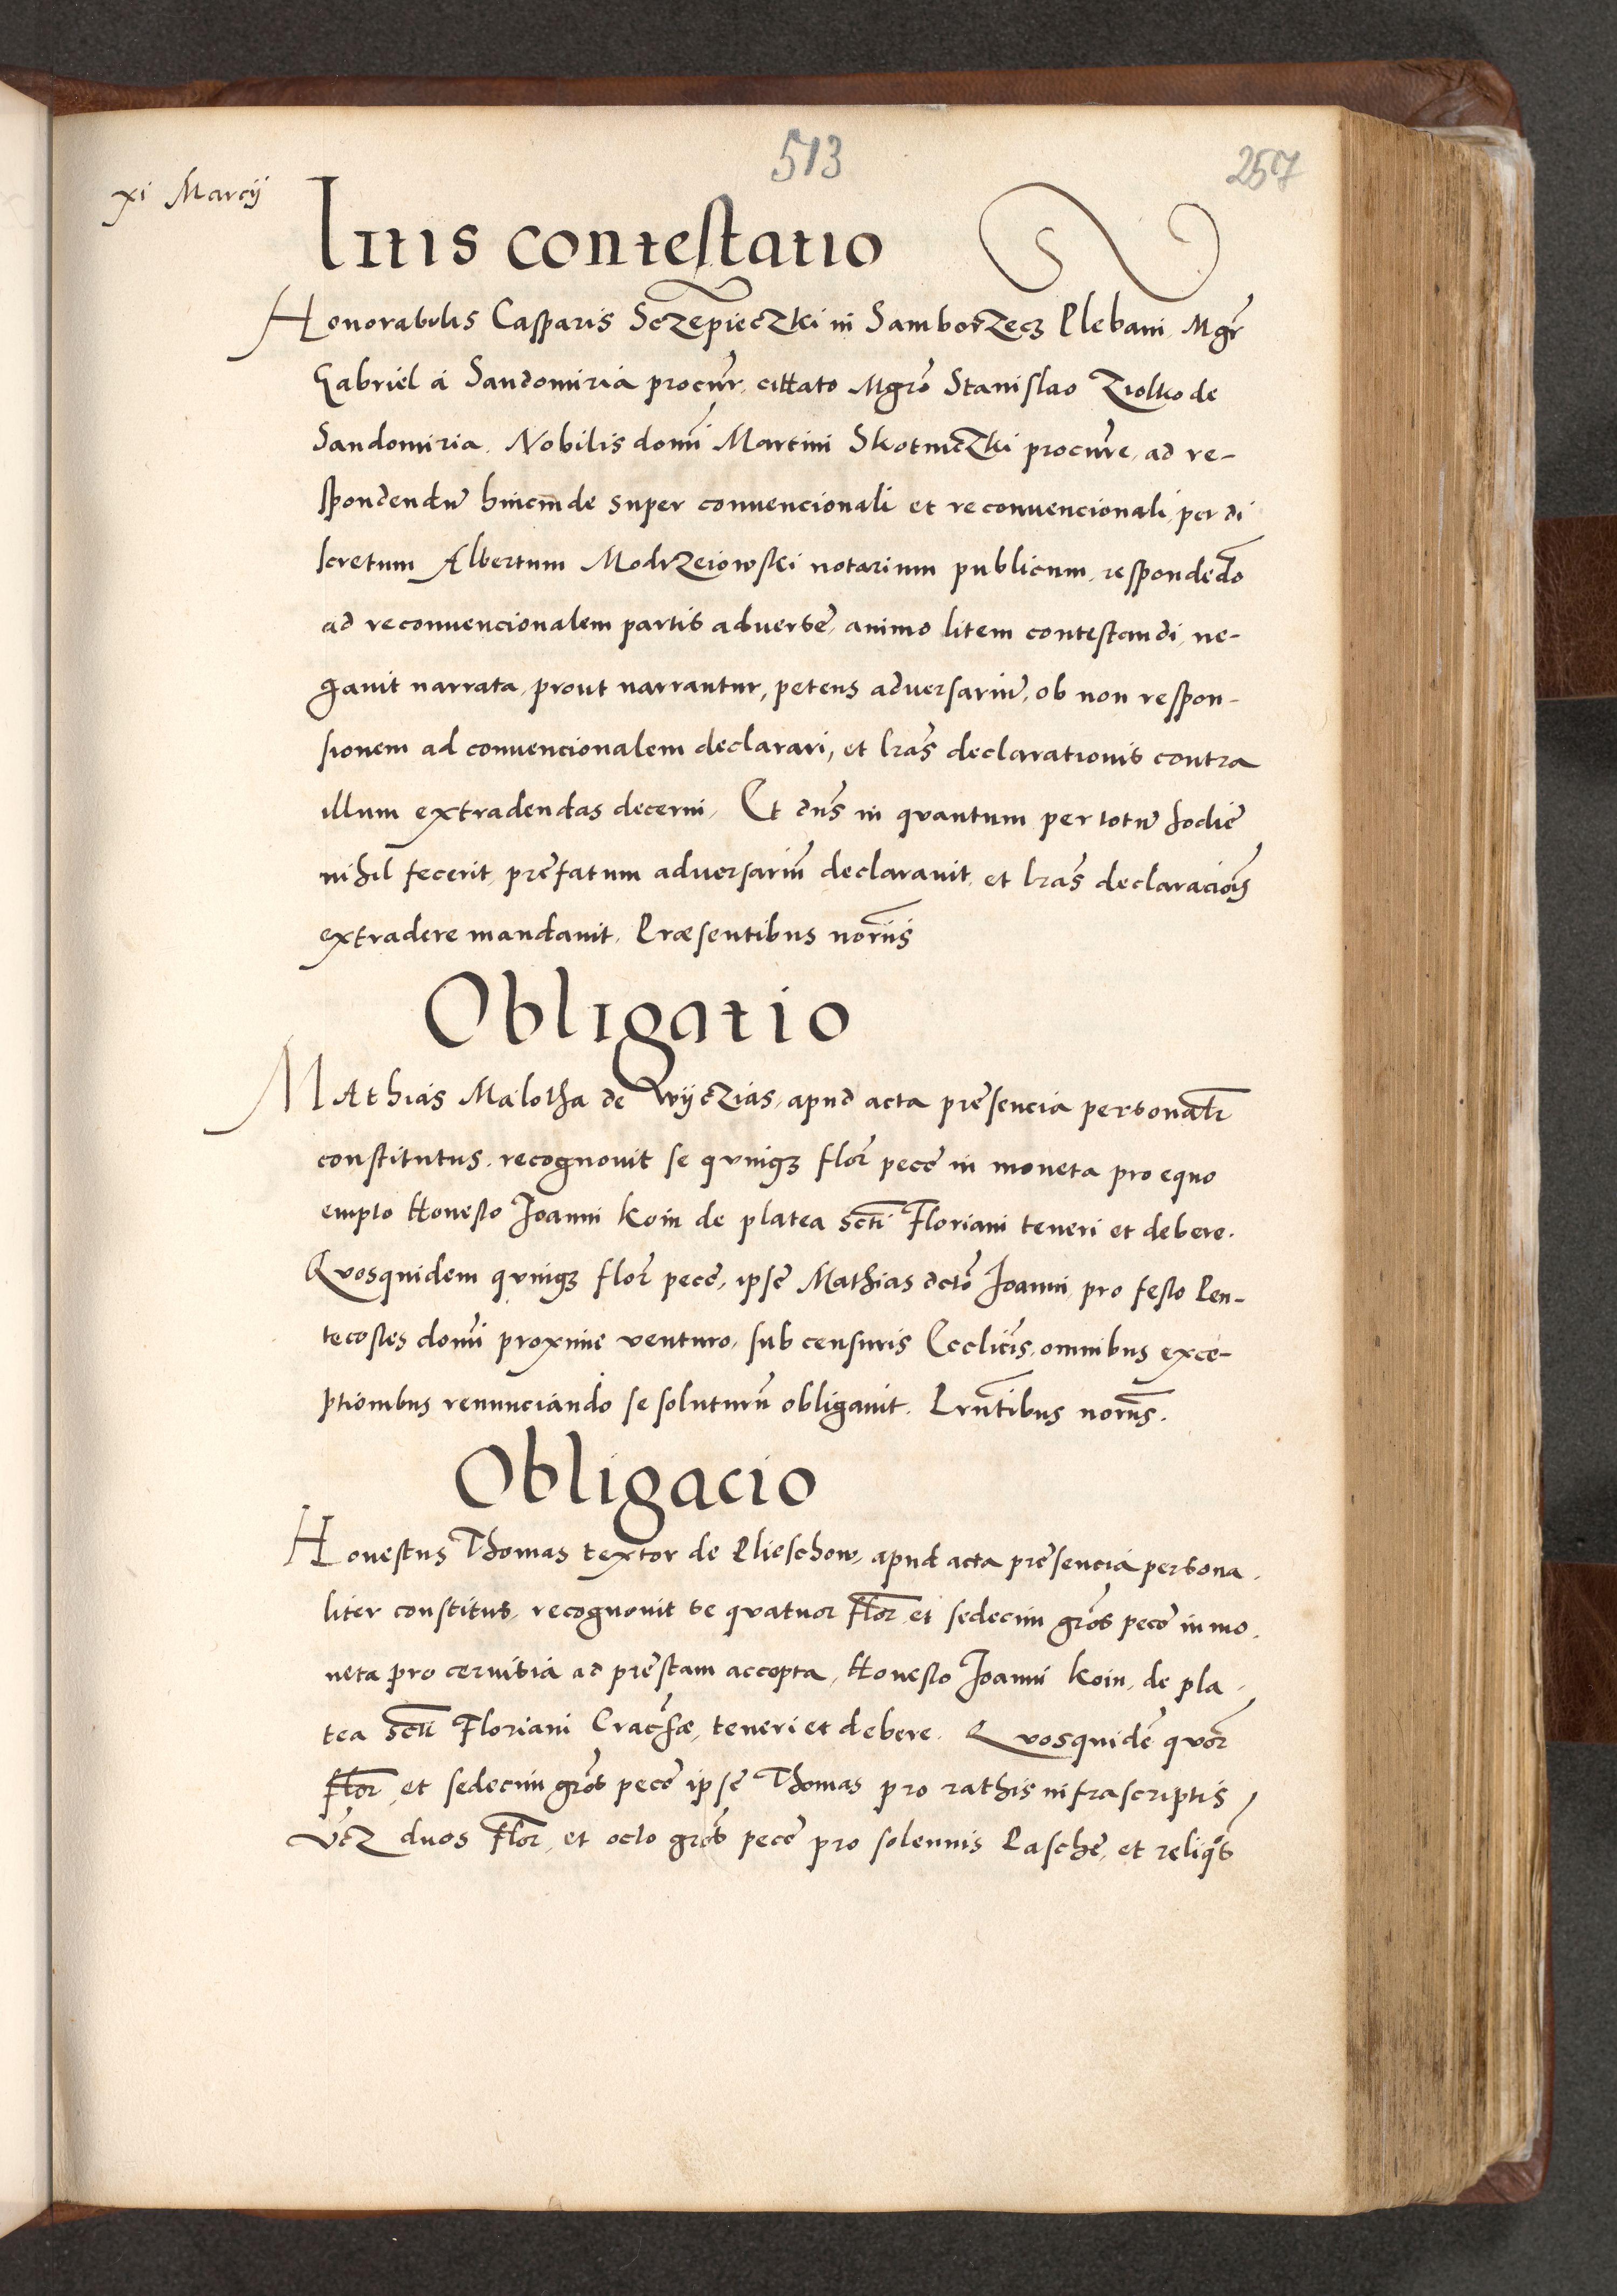 513
257
xi Marcij
Litis contestatio
Honorabilis Casparis Sczepieczki in Samborzecz Plebani Mgr̃
Gabriel a Sandomiria procur̃, cittato Mgrõ Stanislao Ziolko de
Sandomiria. Nobilis domĩ Martini Skotniczki procur̃e, ad re-
spondendũ hincinde super convencionali et reconvencionali, per di
scretum Albertum Modrzeiowski notarium publicum, respondẽdo
ad reconvencionalem partis adversẽ, animo litem contestandi, ne-
gavit narrata, prout narrantur, petens adversariũ, ob non respon-
sionem ad convencionalem declarari, et lrãs declarationis contra
illum extradendas decerni, Et dñs in quantum per totũ hodiẽ
nihil fecerit, prẽfatum adversariũ declaravit, et lrãs declaraciõis
extradere mandavit, Præsentibus norĩis
Obligatio
MAthias Malotha de Wijczias, apud acta presencia personalr̃
constitutus, recognovit se quinqȝ flor̃ pecẽ in moneta pro equo
empto Honesto Joanni Koin de platea sctĩ Floriani teneri et debere.
Quosquidem quinqȝ flor̃ pecẽ, ipse Mathias dctõ Joanni, pro festo Pen-
tecostes domĩ proxime venturo, sub censuris Ecclicĩs, omnibus exce-
ptionibus renunciando se soluturũ obligavit. Prñtibus norĩis.
Obligacio
Honestus Thomas textor de Plieschow, apud acta presencia persona
liter constitus, recognovit se quatuor flor̃ et sedecim grõs pecẽ in mo
neta pro cervisia ad prestam accepta, Honesto Joanni Koin, de pla
tea sctĩ Floriani Crac̃hæ, teneri et debere. Quosquidẽ quor̃
flor̃ et sedecim grõs pecẽ ipse Thomas pro rathis infrascriptis
vc̃z duos flor̃ et octo grõs pecẽ pro solennis Paschẽ, et reliqõs